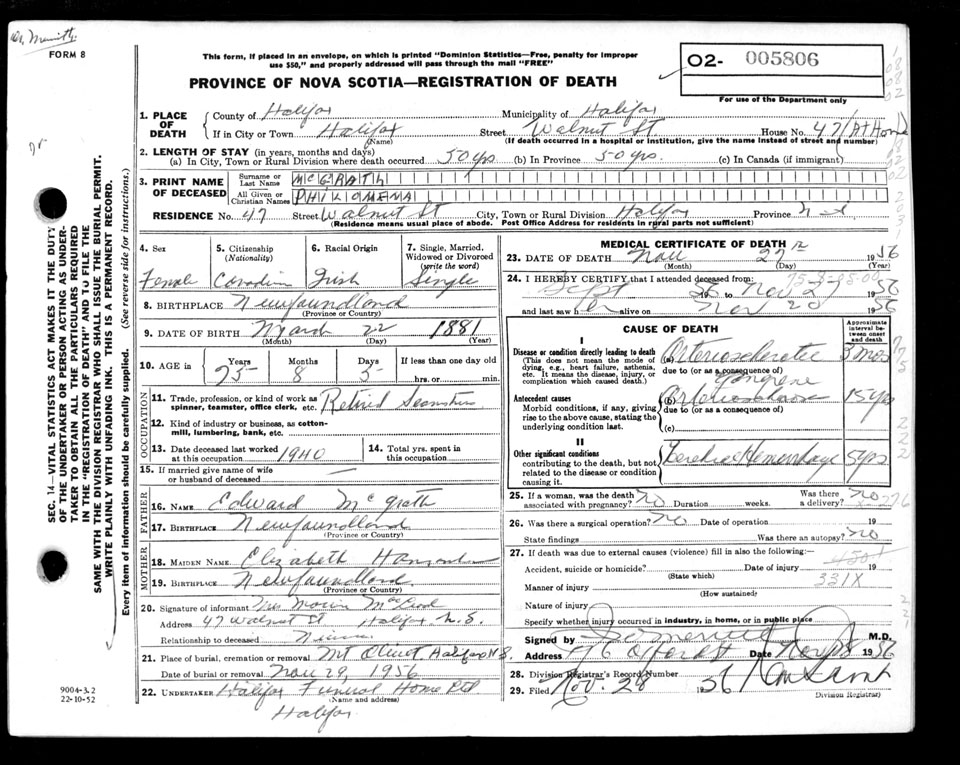 FORM 8
This form, if placed in an envelope, on which is printed "Dominion Statistics—Free, penalty for improper
use $50," and properly addressed will pass through the mail "FREE"
PROVINCE OF NOVA SCOTIA—REGISTRATION OF DEATH
O2- 005806
For use of the Department only
1. PLACE OF DEATH
County of Halifax Municipality of Halifax
If in City or Town Halifax Street Walnut St House No. 47 / At Home
(Name) (If death occurred in a hospital or institution, give the name instead of street and number)
2. LENGTH OF STAY (in years, months and days)
(a) In City, Town or Rural Division where death occurred 50 yrs (b) In Province 50 yrs. (c) In Canada (if immigrant)
3. PRINT NAME OF DECEASED
Surname or Last Name McGRATH
All Given or Christian Names PHILOMENA
RESIDENCE No. 47 Street Walnut St City, Town or Rural Division Halifax Province N S
(Residence means usual place of abode. Post Office Address for residents in rural parts not sufficient)
4. Sex
Female
5. Citizenship (Nationality)
Canadian
6. Racial Origin
Irish
7. Single, Married, Widowed or Divorced (write the word)
Single
8. BIRTHPLACE Newfoundland
(Province or Country)
9. DATE OF BIRTH March 22 1881
(Month) (Day) (Year)
10. AGE in Years Months Days If less than one day
75 8 5 hrs. or min.
OCCUPATION
11. Trade, profession, or kind of work as spinner, teamster, office clerk, etc. Retired Seamstress
12. Kind of industry or business, as cotton-mill, lumbering, bank, etc.
13. Date deceased last worked at this occupation 1940
14. Total yrs. spent in this occupation
15. If married give name of wife or husband of deceased —
FATHER
16. NAME Edward McGrath
17. BIRTHPLACE Newfoundland
(Province or Country)
MOTHER
18. MAIDEN NAME Elizabeth
19. BIRTHPLACE Newfoundland
(Province or Country)
20. Signature of informant Mrs
Address 47 Walnut St Halifax N.S.
Relationship to deceased Niece
21. Place of burial, cremation or removal Mt Olivet, Halifax N.S.
Date of burial or removal Nov 29, 1956
22. UNDERTAKER Halifax Funeral Home Ltd
(Name and address)
Halifax
MEDICAL CERTIFICATE OF DEATH
23. DATE OF DEATH Nov 27 1956
(Month) (Day) (Year)
24. I HEREBY CERTIFY that I attended deceased from:
Sept 1956 to Nov 27 1956
and last saw her alive on Nov 20 1956
CAUSE OF DEATH
Approximate interval between onset and death
I
Disease or condition directly leading to death
(This does not mean the mode of dying, e.g., heart failure, asthenia, etc. It means the disease, injury, or complication which caused death.)
(a) Arteriosclerotic Gangrene 3 mos
due to (or as a consequence of)
Antecedent causes
Morbid conditions, if any, giving rise to the above cause, stating the underlying condition last.
(b) Arteriosclerosis 15 yrs
due to (or as a consequence of)
(c)
II
Other significant conditions
contributing to the death, but not related to the disease or condition causing it.
Cerebral Hemorrhage 5 yrs
25. If a woman, was the death associated with pregnancy? no Duration weeks. Was there a delivery? no
26. Was there a surgical operation? no Date of operation 19
State findings Was there an autopsy? no
27. If death was due to external causes (violence) fill in also the following:—
Accident, suicide or homicide? Date of injury 19
(State which)
331X
Manner of injury
(How sustained)
Nature of injury
Specify whether injury occurred in industry, in home, or in public place
Signed by M.D.
Address Date Nov 28 1956
28. Division Registrar's Record Number
29. Filed Nov. 28 1956
Division Registrar
SEC. 14—VITAL STATISTICS ACT MAKES IT THE DUTY
OF THE UNDERTAKER OR PERSON ACTING AS UNDER-
TAKER TO OBTAIN ALL THE PARTICULARS REQUIRED
IN THE "REGISTRATION OF DEATH" AND TO FILE THE
SAME WITH THE DIVISION REGISTRAR WHO SHALL ISSUE THE BURIAL PERMIT.
WRITE PLAINLY WITH UNFADING INK. THIS IS A PERMANENT RECORD.
Every item of information should be carefully supplied. (See reverse side for instructions.)
9004-3.2
22-10-52